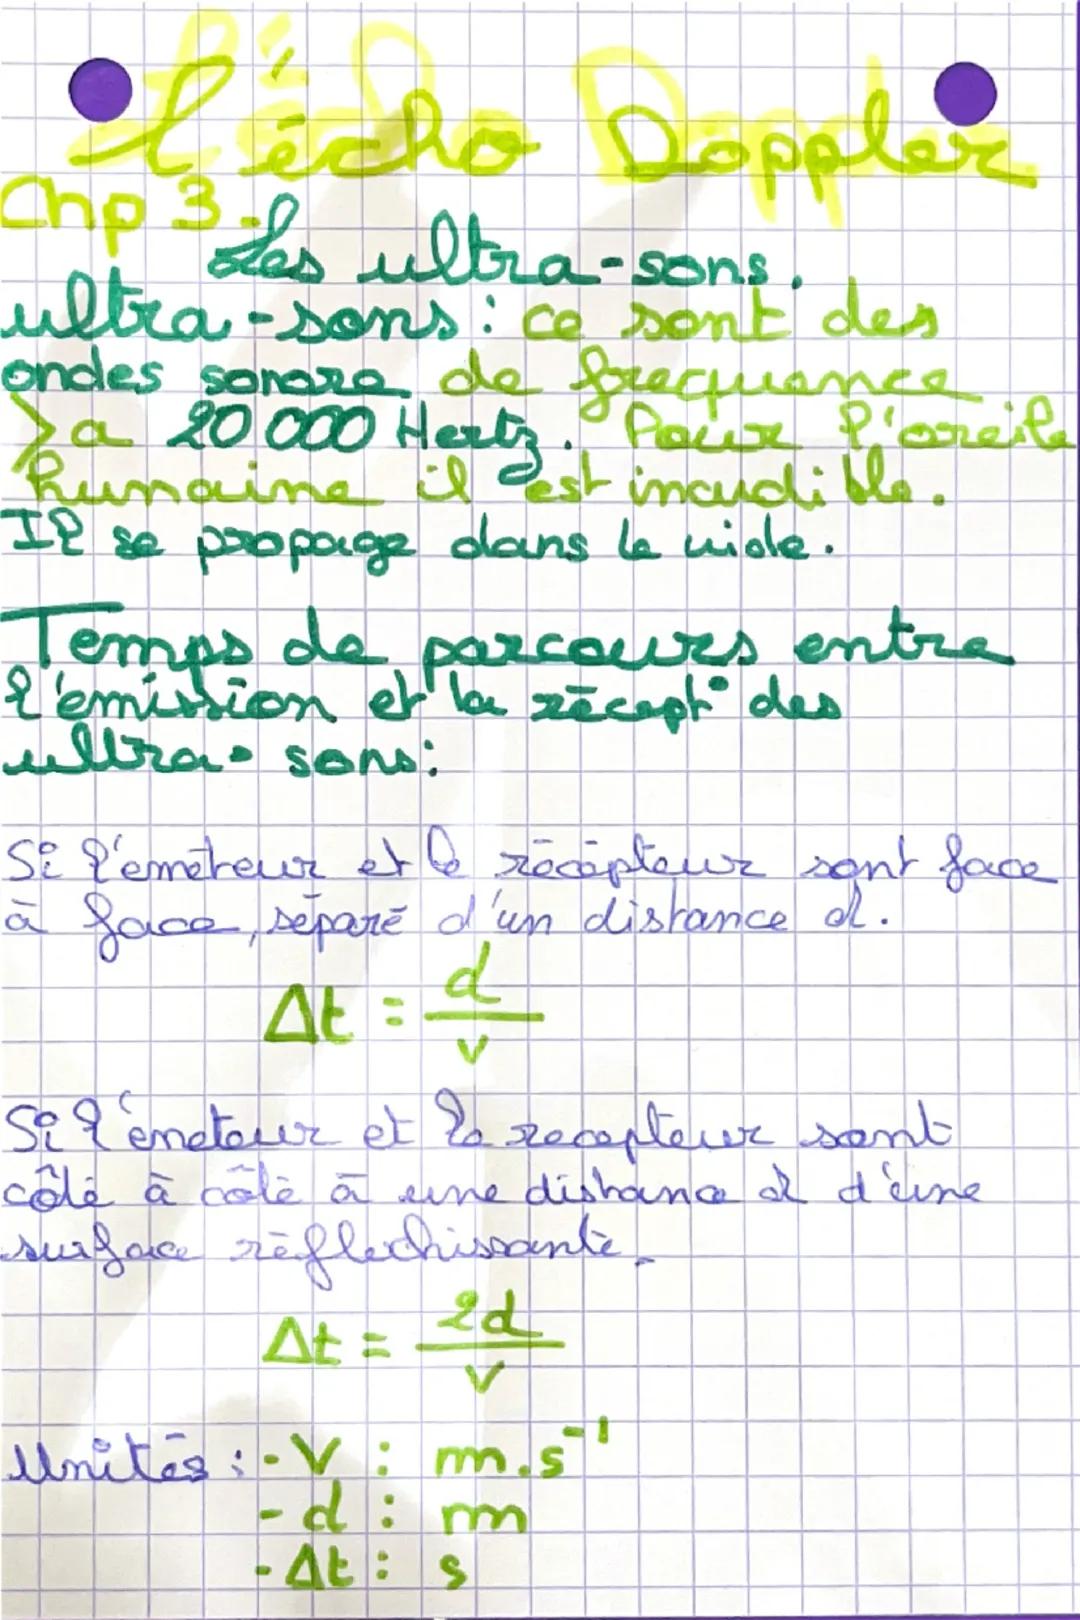 L'écho Doppler
Chp 3.
Les ultra-sons.
ultra-sons : ce sont des
ondes sonore de frequence
> a 20 000 Hertz. Pour l'oreile
humaine il est inaudible.
Il se propage dans le vide.
Temps de parcours entre
l'émission et la récept° des
ultra-sons:
Si l'eméteur et le récépteur sont face
à face, séparé d'un distance d.
Δt = d/v
Si l'émeteur et le recepteur sont
côté à côté à une distance d d'une
surface réflechissante.
Δt = 2d/v
Unités : - V : m.s⁻¹
- d : m
- Δt : s